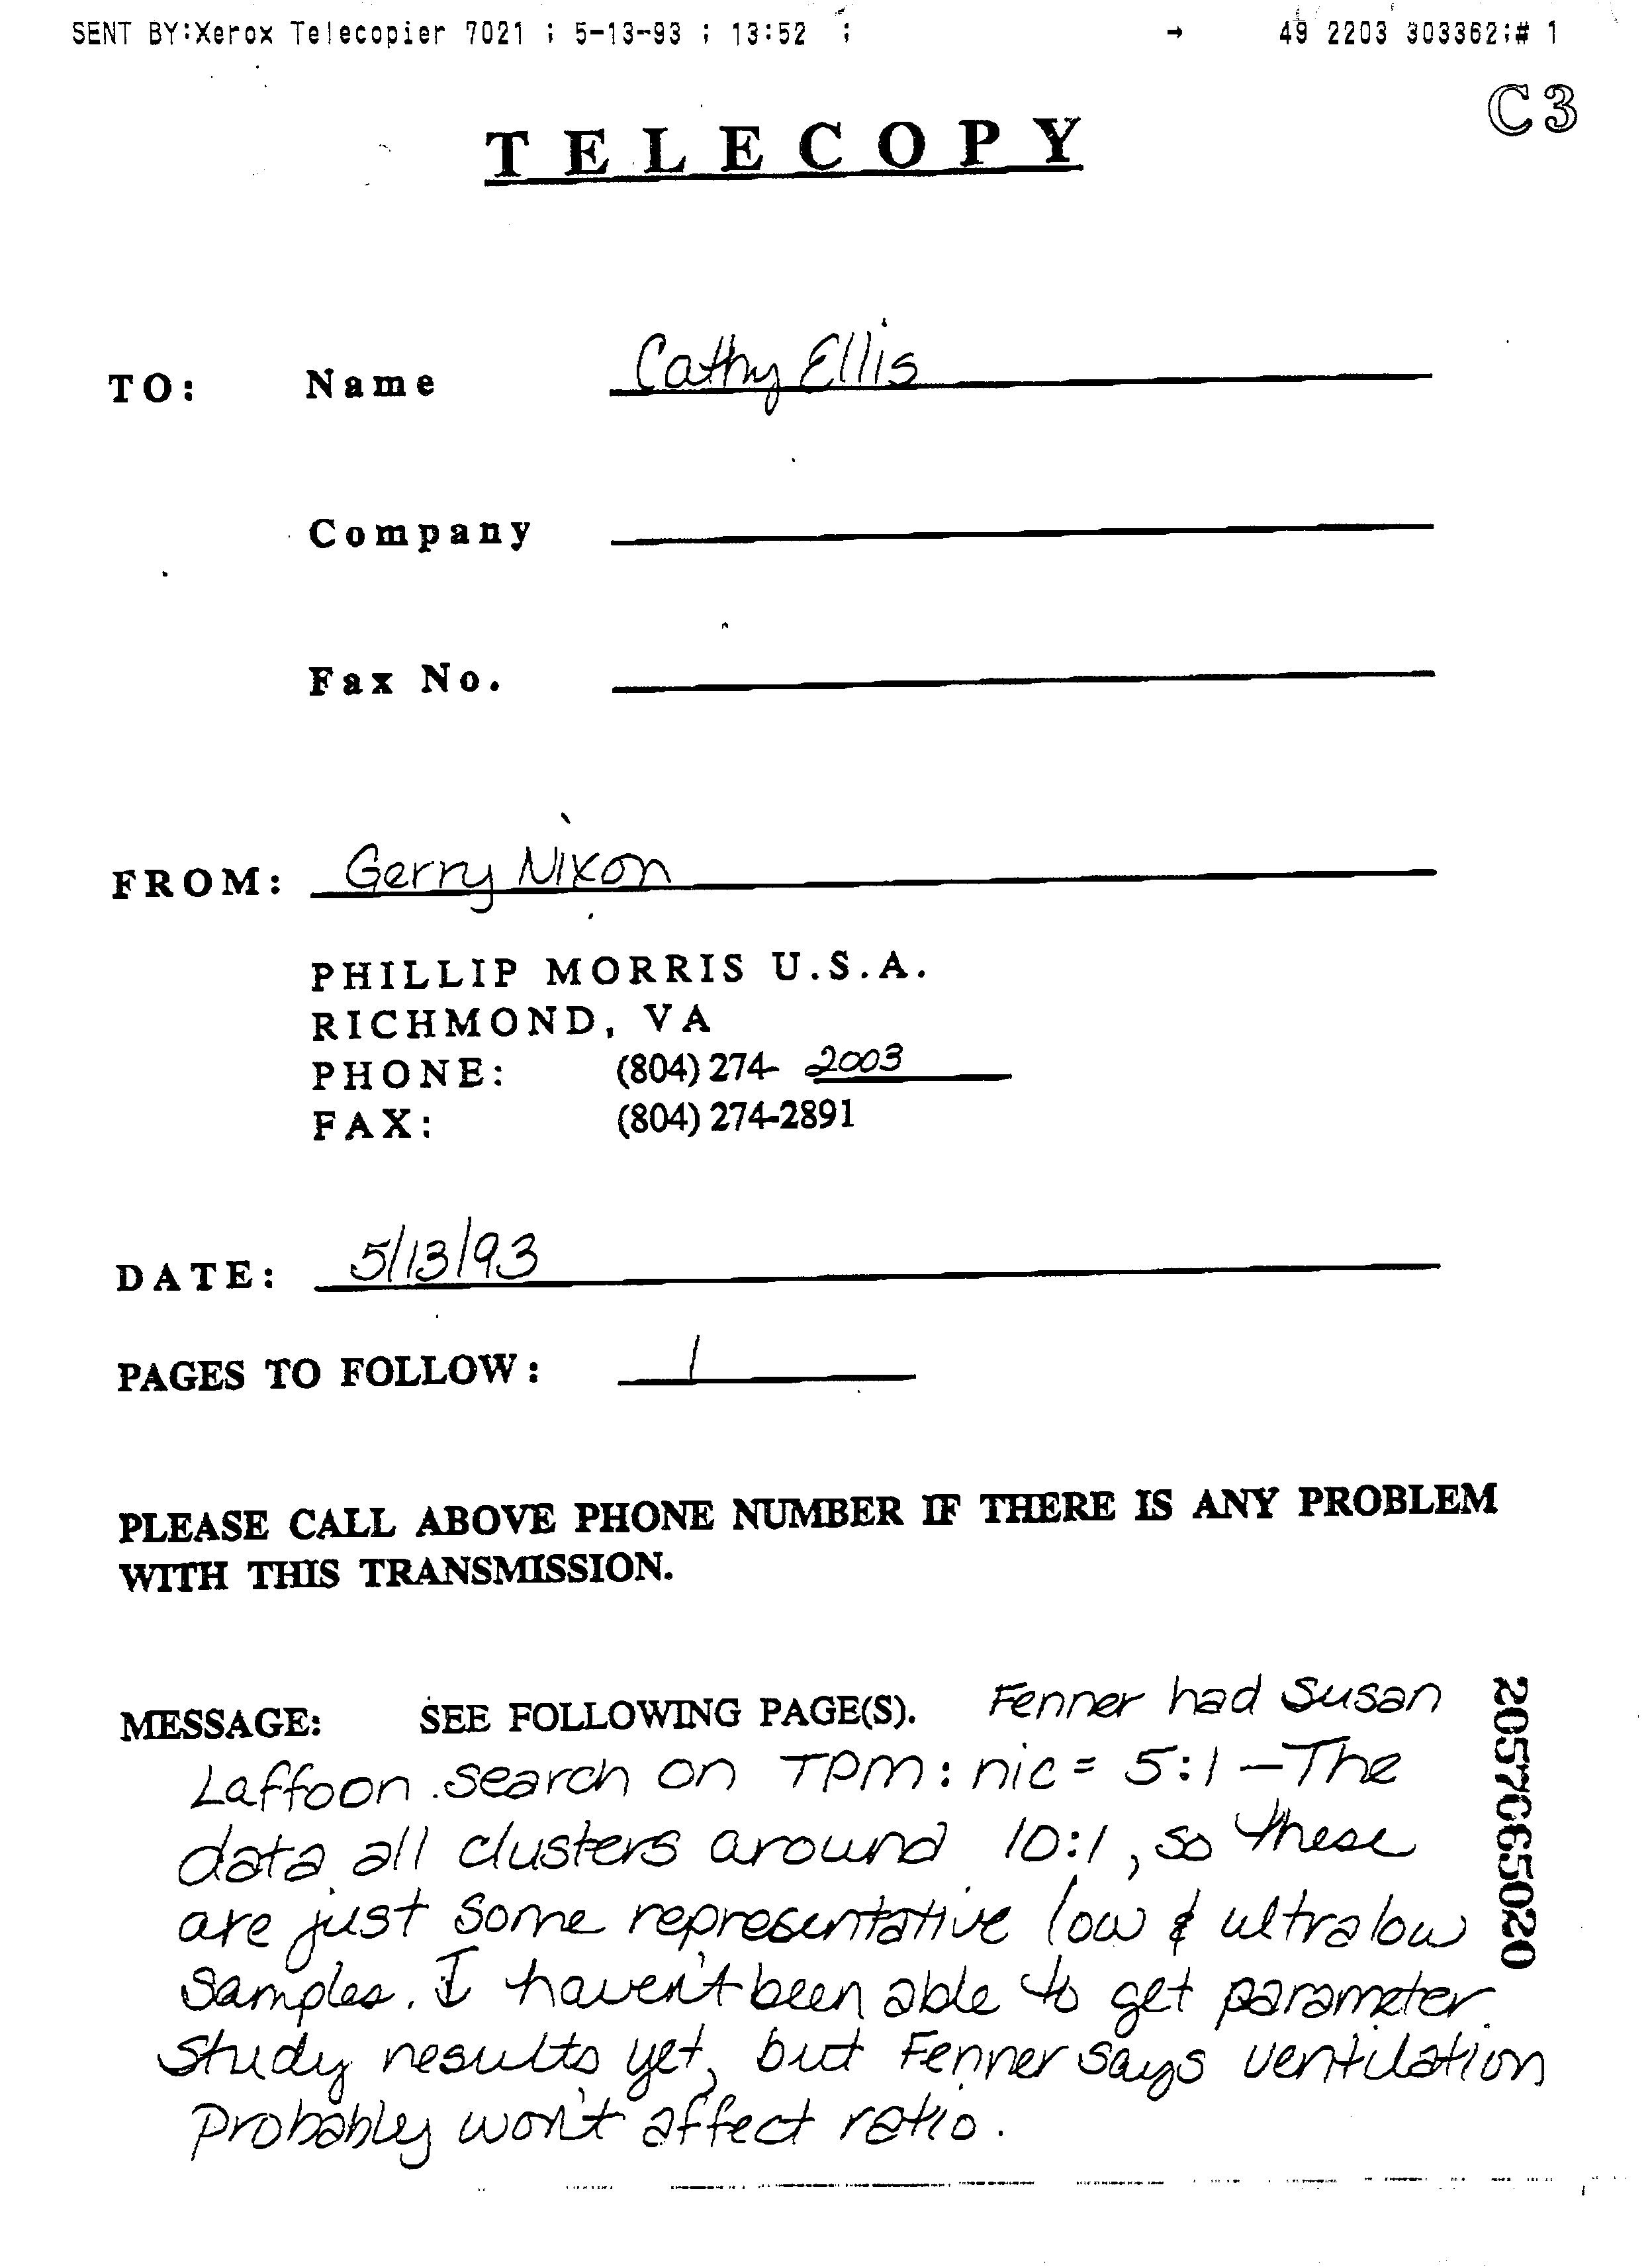 SENT BY:Xerox Telecopier 7021 ; 5-13-93 ; 13:52 ; → 49 2203 303362;# 1
C3
TELECOPY
TO: Name Cathy Ellis
Company
Fax No.
FROM: Gerry Nixon
PHILLIP MORRIS U.S.A.
RICHMOND, VA
PHONE: (804) 274- 2003
FAX: (804) 274-2891
DATE: 5/13/93
PAGES TO FOLLOW: 1
PLEASE CALL ABOVE PHONE NUMBER IF THERE IS ANY PROBLEM
WITH THIS TRANSMISSION.
MESSAGE: SEE FOLLOWING PAGE(S). Fenner had Susan
Laffoon search on TPM: nic = 5:1 - The
data all clusters around 10:1, so these
are just some representative low & ultralow
samples. I haven't been able to get parameter
study results yet, but Fenner says ventilation
probably won't affect ratio.
2057065020